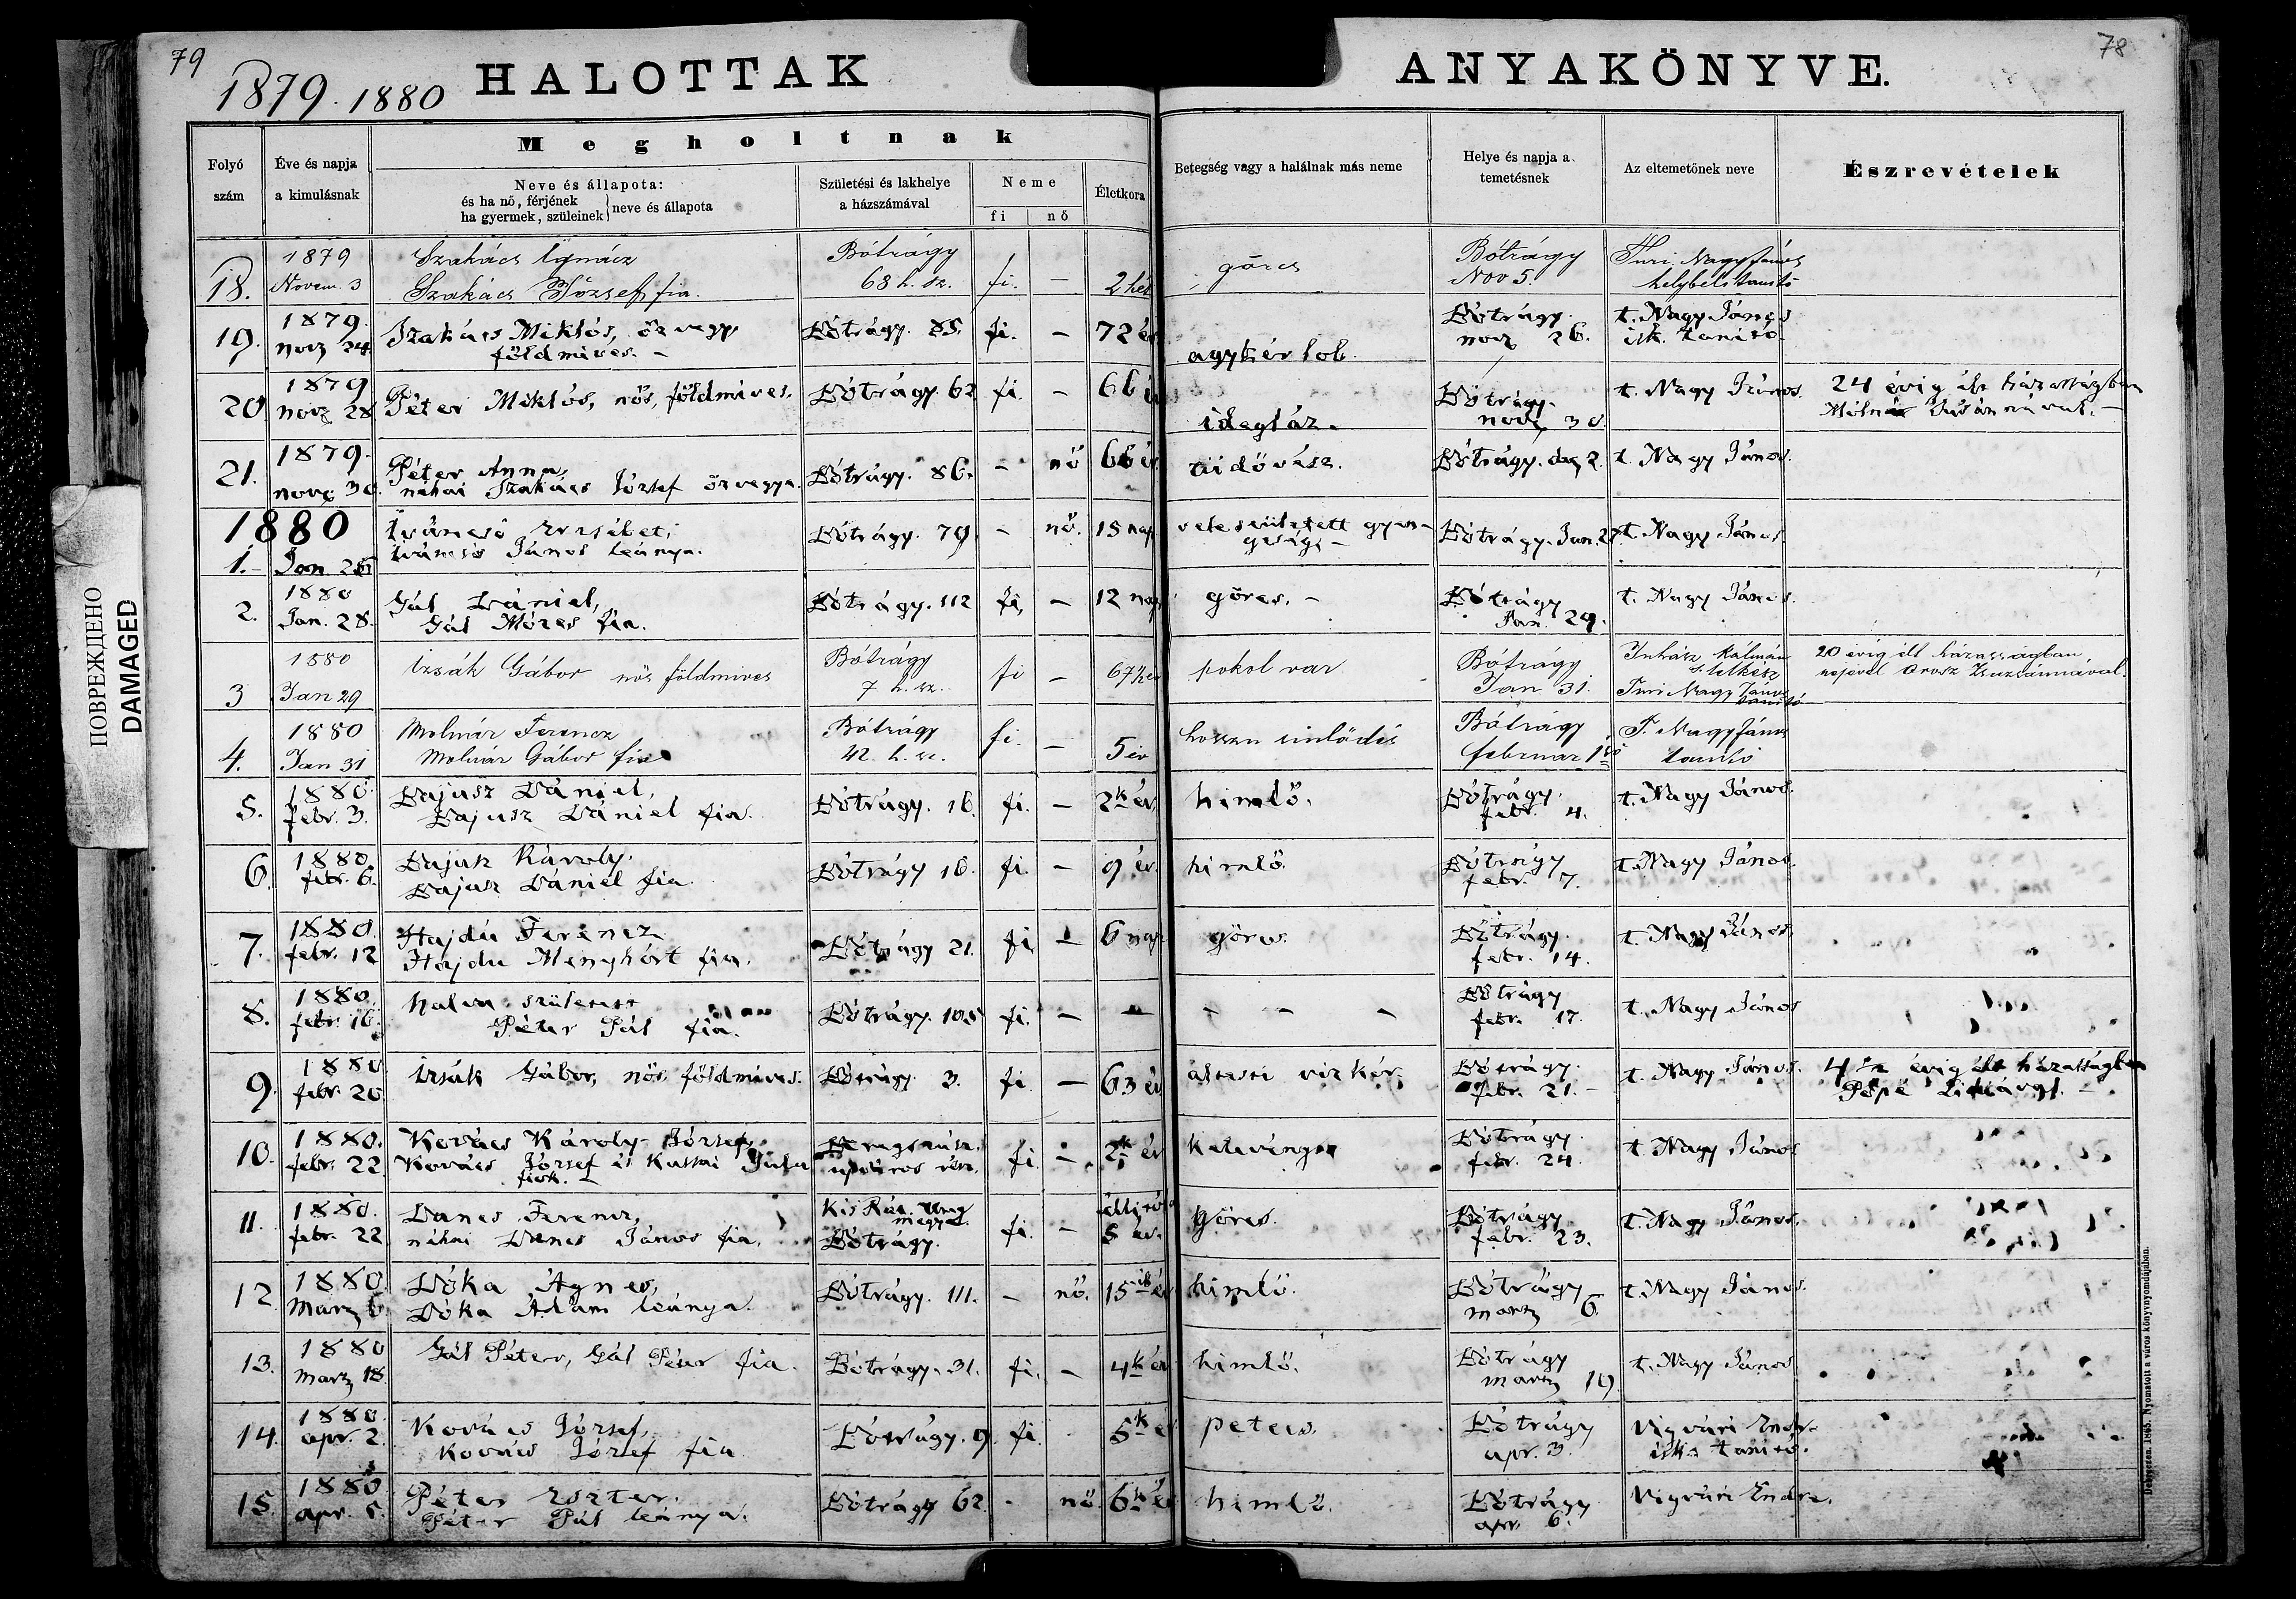 79
78
1879. 1880 HALOTTAK ANYAKÖNYVE.
ПОВРЕЖДЕНО
DAMAGED
Folyó szám
Éve és napja a kimulásnak
Megholtnak
Neve és állapota:
és ha nő, férjének
ha gyermek, szüleinek } neve és állapota
Születési és lakhelye a házszámával
Neme
fi nő
Életkora
Betegség vagy a halálnak más neme
Helye és napja a temetésnek
Az eltemetőnek neve
Észrevételek
18. 1879 Novem. 3 Szakács Ignácz Szakács József fia. Bótrágy 68 h. sz. fi. – 2 hét görcs Bótrágy Nov 5. Turi Nagy János helybeli tanító
19. 1879. nov. 24. Szakács Miklós, özvegy földmives. – Bótrágy. 85. fi. – 72 év agykérlob. Bótrágy. nov. 26. t. Nagy János isk. tanító.
20 1879 nov. 28 Péter Miklós, nős, földmives. Bótrágy. 62 fi. – 66 idegláz. Bótrágy. nov. 30. t. Nagy János. 24 évig élt házasságban Molnár Zsuzsánnával. –
21. 1879. nov. 30. Péter Anna, néhai Szakács József özvegye. Bótrágy. 86. – nő 66 év tüdővész. Bótrágy. dec. 2. t. Nagy János.
1880
1. – Jan. 26 Iváncsó Erzsébet; Iváncsó János leánya. Bótrágy. 79 – nő. 15 nap vele született gyengeség. – Bótrágy. Jan. 27. t. Nagy János.
2. 1880 Jan. 28. Gál Dániel, Gál Mózes fia. Bótrágy. 112 fi, – 12 nap görcs. – Bótrágy Jan. 29. t. Nagy János.
3 1880 Jan 29 Izsák Gábor nős földmives Bótrágy 7 h. sz. fi – 67 év pokol var Bótrágy Jan 31. Juhász Kálmán s. lelkész Turi Nagy János tanító 20 évig élt házasságban nejével Orosz Zsuzsánnával.
4. 1880 Jan 31 Molnár Ferencz Molnár Gábor fia Bótrágy 42. h. sz. fi. – 5 év hosszu sinlődés Bótrágy februar 1ső T. Nagy János tanító
5. 1880 febr. 3. Bajusz Dániel, Bajusz Dániel fia. Bótrágy. 16. fi. – 2k év. himlő. Bótrágy. febr. 4. t. Nagy János.
6. 1880. febr. 6. Bajusz Károly. Bajusz Dániel fia. Bótrágy 16. fi. – 9 év. himlő. Bótrágy febr. 7. t. Nagy János.
7. 1880. febr. 12 Hajdu Ferencz Hajdu Menyhért fia. Bótrágy 21. fi – 6 nap görcs. Bótrágy. febr. 14. t. Nagy János.
8. 1880. febr. 16. halva született Péter Pál fia. Bótrágy. 105 fi. – – – – – Bótrágy febr. 17. t. Nagy János
9. 1880 febr. 20 Izsák Gábor, nős földmives. Bótrágy 3. fi. – 63 év altesti vizkór. Bótrágy. febr. 21. – t. Nagy János. évig élt házasságban Pópé Lidiával. –
10. 1880. febr. 22 Kovács Károly-József, Kovács József és Kassai Julia Beregszász. fi. – 2k év kelevény Bótrágy. febr. 24. t. Nagy János
11. 1880. febr. 22 Danes Ferencz, néhai Danes János fia. Kis Rát. Ung megye. Bótrágy. fi. – állitólag 5 év. görcs. Bótrágy. febr. 23. t. Nagy János.
12. 1880 marz. 6 Dóka Ágnes, Dóka Ádám leánya. Bótrágy. 111. – nő. 15ik év himlő. Bótrágy martz 6. t. Nagy János.
13. 1880 marz. 18. Gál Péter, Gál Péter fia. Bótrágy. 31. fi. – 4k év himlő. Bótrágy martz 19. t. Nagy János
14. 1880. apr. 2. Kovács József, Kovács József fia Bótrágy. 9 fi. 5k év petecs. Bótrágy apr. 3. Vigvári Endre isk. tanító.
15. 1880 apr. 5. Péter Eszter, Péter Pál leánya. Bótrágy 62. – nő. 6k év himlő. Bótrágy apr. 6. Vigvári Endre.
Debreczen. 1865. Nyomatott a város könyvnyomdájában.